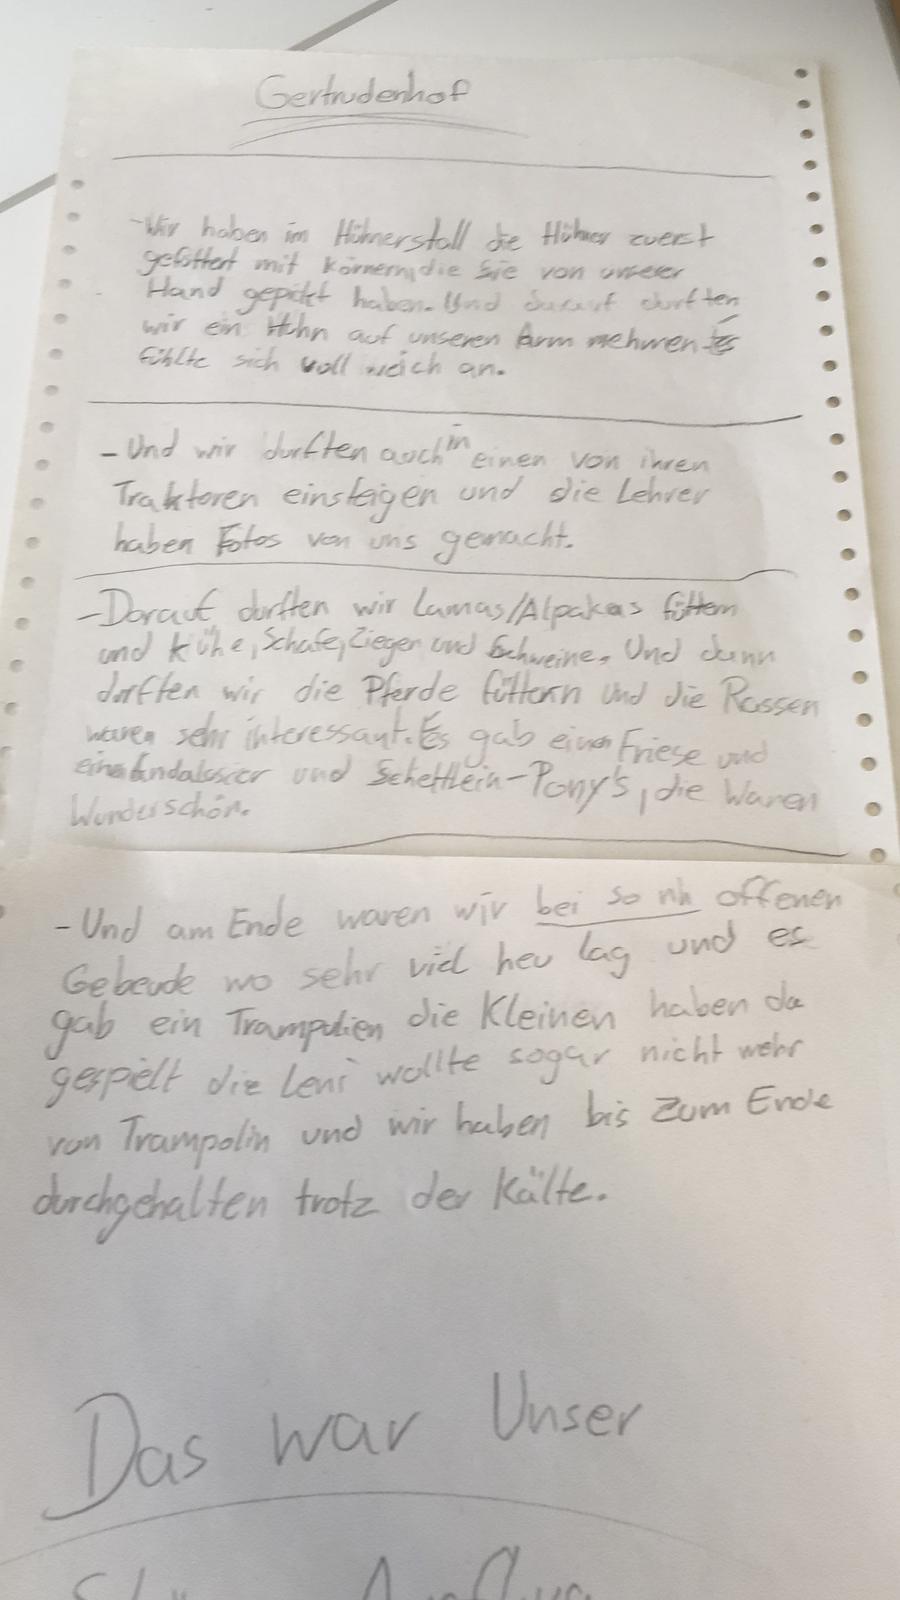 Gertrudenhof
- Wir haben im Hühnerstall die Hühner zuerst
gefüttert mit Körnern, die Sie von unserer
Hand gepickt haben. Und darauf durften
wir ein Huhn auf unseren Arm nehmen Es
fühlte sich voll weich an.
- Und wir durften auch in einen von ihren
Traktoren einsteigen und die Lehrer
haben Fotos von uns gemacht.
- Darauf durften wir Lamas/Alpakas füttern
und Kühe, Schafe, Ziegen und Schweine. Und dann
durften wir die Pferde füttern und die Rassen
waren sehr interessant. Es gab einen Friese und
und Schettlein-Pony's, die Waren
Wunderschön.
- Und am Ende waren wir bei so nh offenen
Gebeude wo sehr viel heu lag und es
gab ein Trampolien die Kleinen haben da
gespielt die Leni wollte sogar nicht mehr
von Trampolin und wir haben bis zum Ende
durchgehalten trotz der Kälte.
Das war Unser